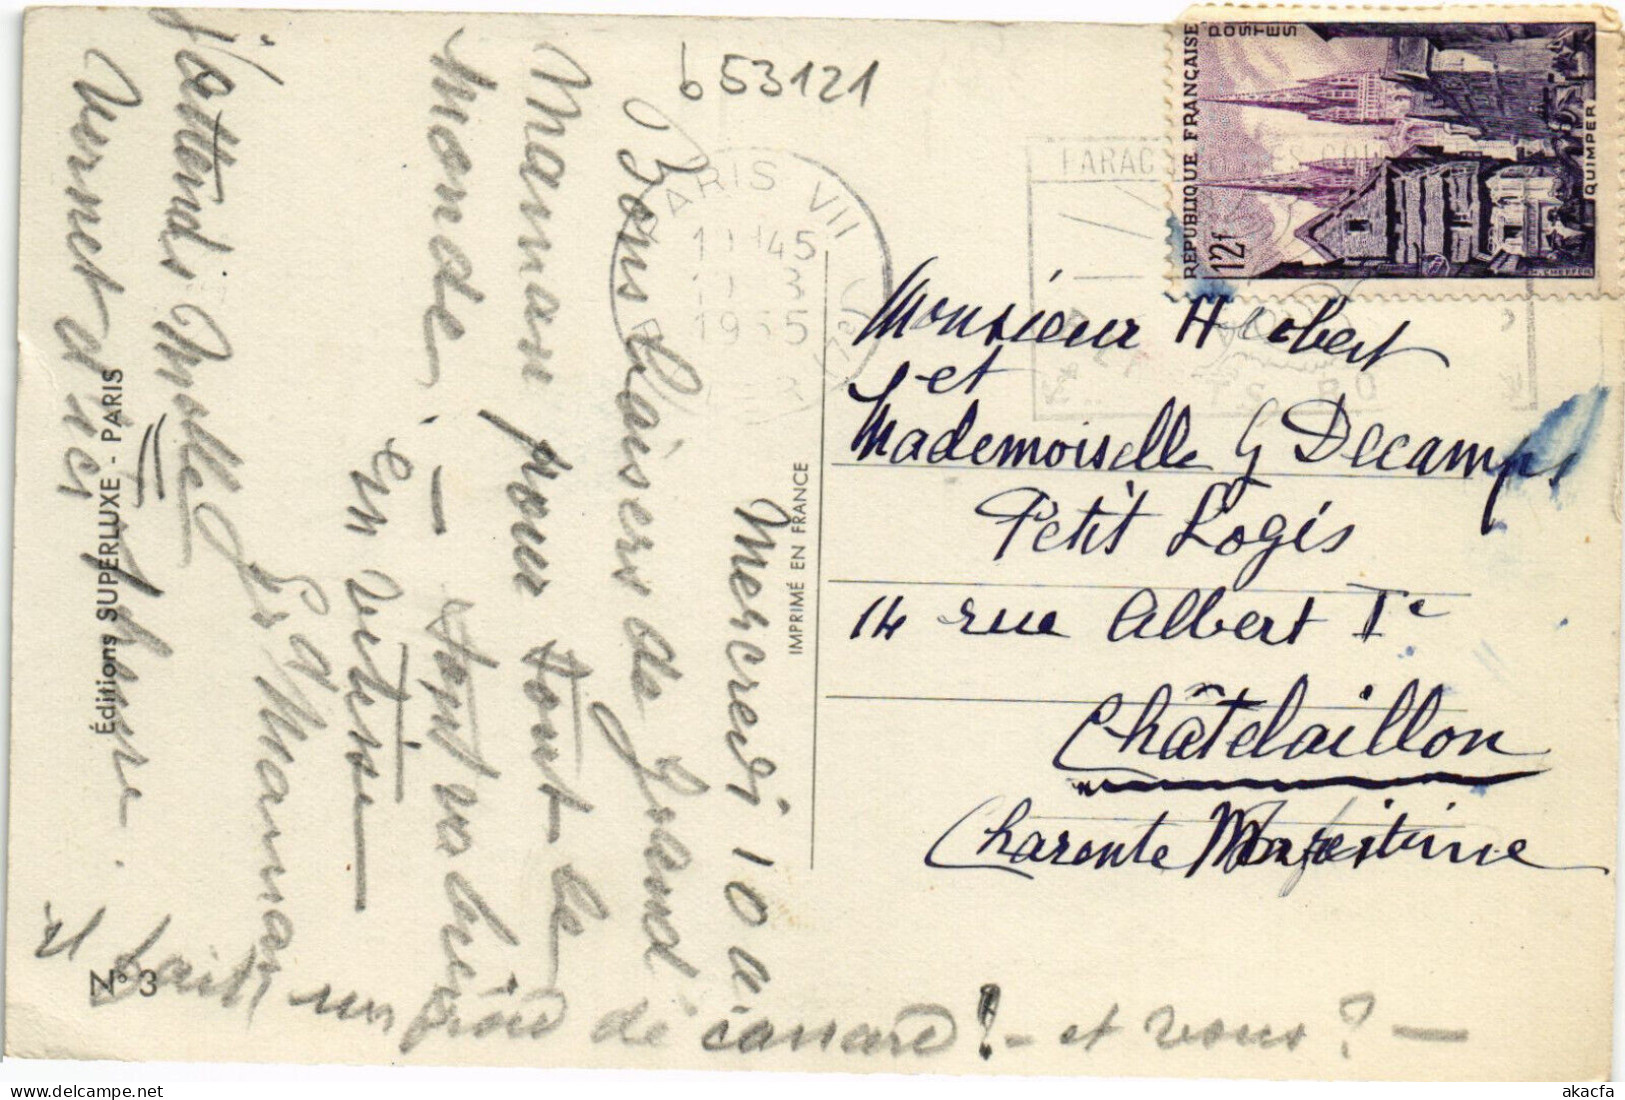 b 53121
REPUBLIQUE FRANÇAISE
POSTES
12f
QUIMPER
H. CHEFFER
PARIS VII
1955
Mercredi 10 a.
Bons baisers de Grand'
Maman pour tout le
monde. — tout va bien
en vitesse
Gd Maman
j'attends Melle
Vernet d'ici
heure.
Il fait un froid de canard! - et vous? —
Éditions SUPERLUXE - PARIS
N° 3
IMPRIMÉ EN FRANCE
Monsieur Hubert
et
Mademoiselle G Decamps
Petit Logis
14 rue Albert Ie
Châtelaillon
Charente Maritime
akacfa